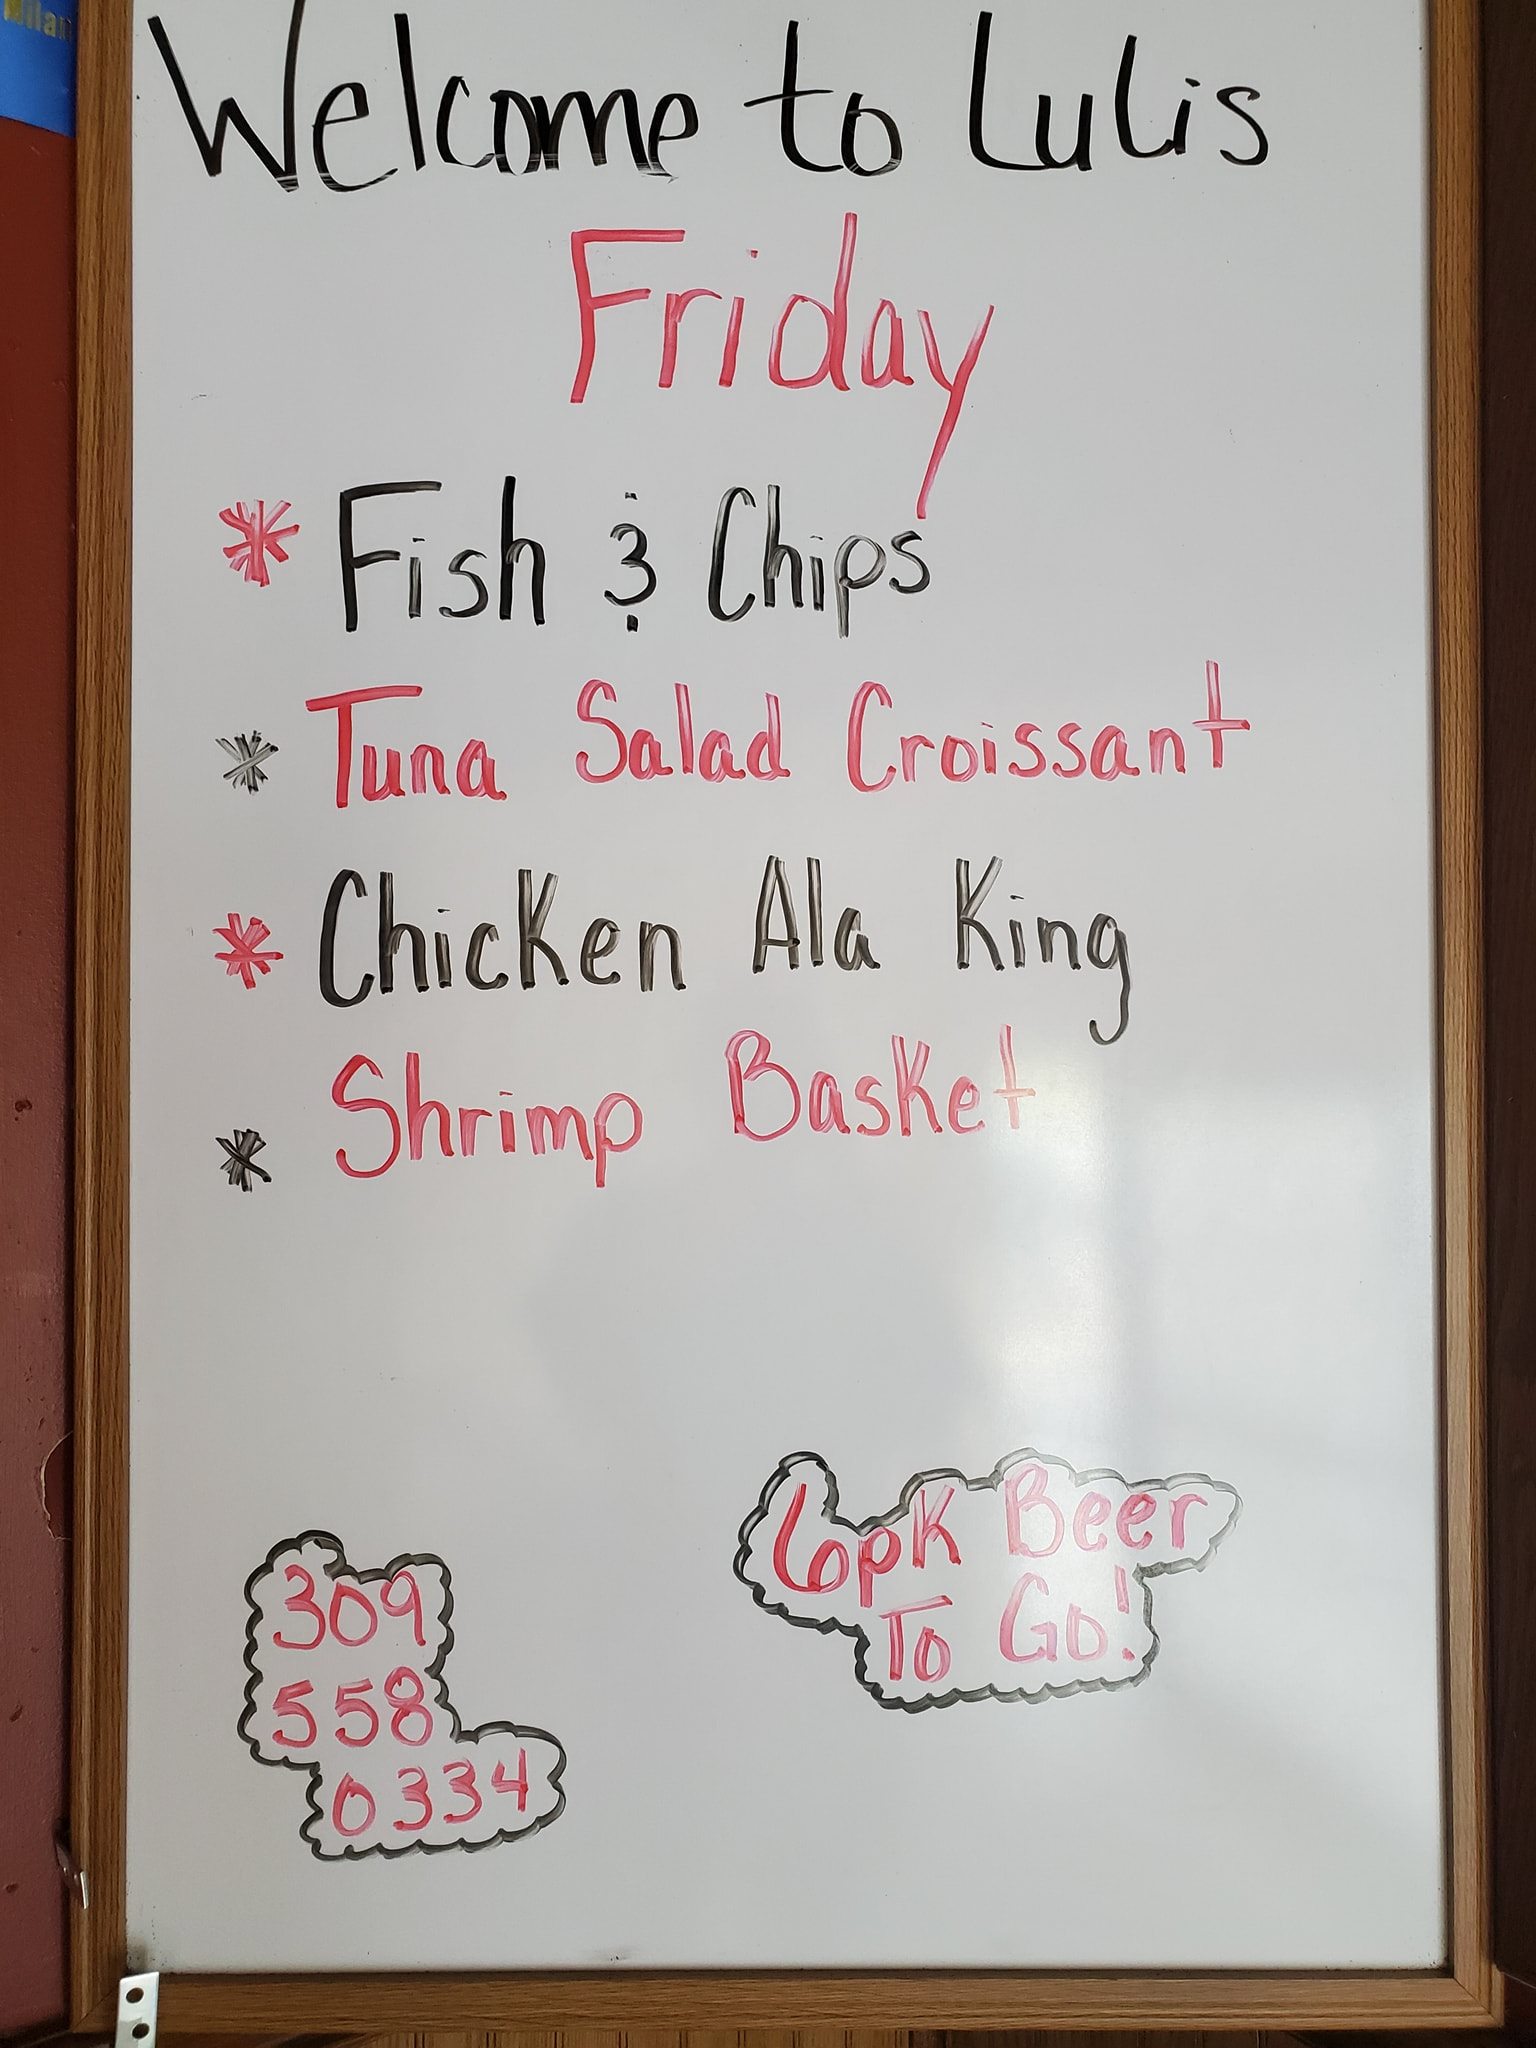 Milan
Welcome to Lulis
Friday
* Fish & Chips
* Tuna Salad Croissant
* Chicken Ala King
* Shrimp Basket
6pk Beer
To Go!
309
558
0334